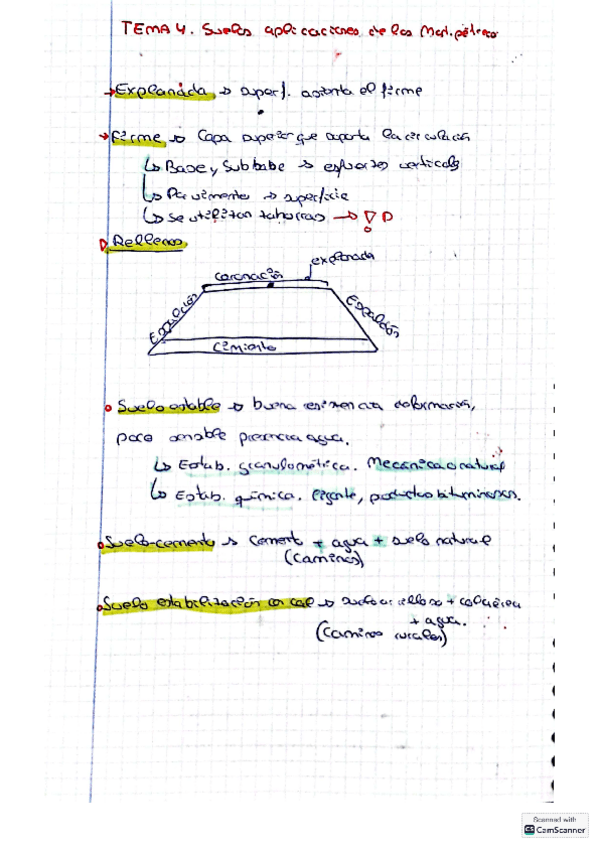 TEMA 4. Suelos aplicaciones de los Mat. pétreos
→ Explanada → superf. asienta el firme
→ Firme → Capa superior que soporta la circulación
↳ Base y Subbase → esfuerzos verticales
↳ Pavimento → superficie
↳ Se utilizan zahorras →
Rellenos
explanada
coronación
Espaldón
Espaldón
Cimiento
• Suelo estable → buena resistencia deformación,
poco sensible presencia agua.
↳ Estab. granulométrica. Mecánica o natural
↳ Estab. química. ligante, productos bituminosos.
• Suelo-cemento → Cemento + agua + suelo natural
(Caminos)
• Suelo estabilización con cal → suelo arcilloso + cal aérea
+ agua.
(Caminos rurales)
Scanned with
CS CamScanner